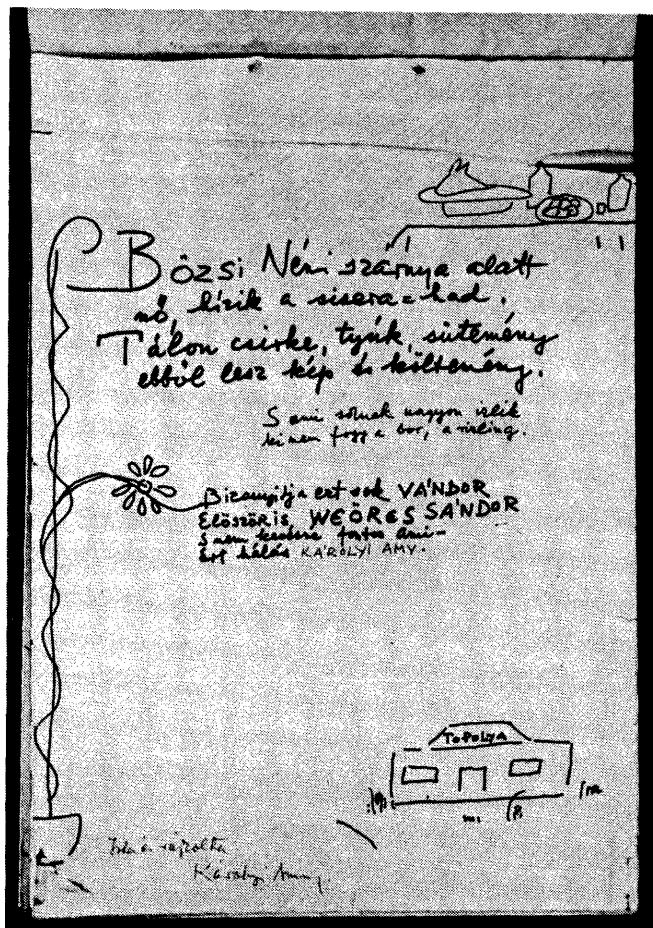 Bözsi Néni szárnya alatt
nő, hízik a sisera-had.
Tálon csirke, tyúk, sütemény
ebből lesz kép és költemény.
S ami soknak nagyon ízlik
ki nem fogy a bor, a rizling.
Bizonyítja ezt sok VÁNDOR
ELŐSZÖR IS, WEÖRES SÁNDOR
S nem kevésbé fontos ami-
ért hálás KÁROLYI AMY.
TOPOLYA
Írta és rajzolta
Károlyi Amy